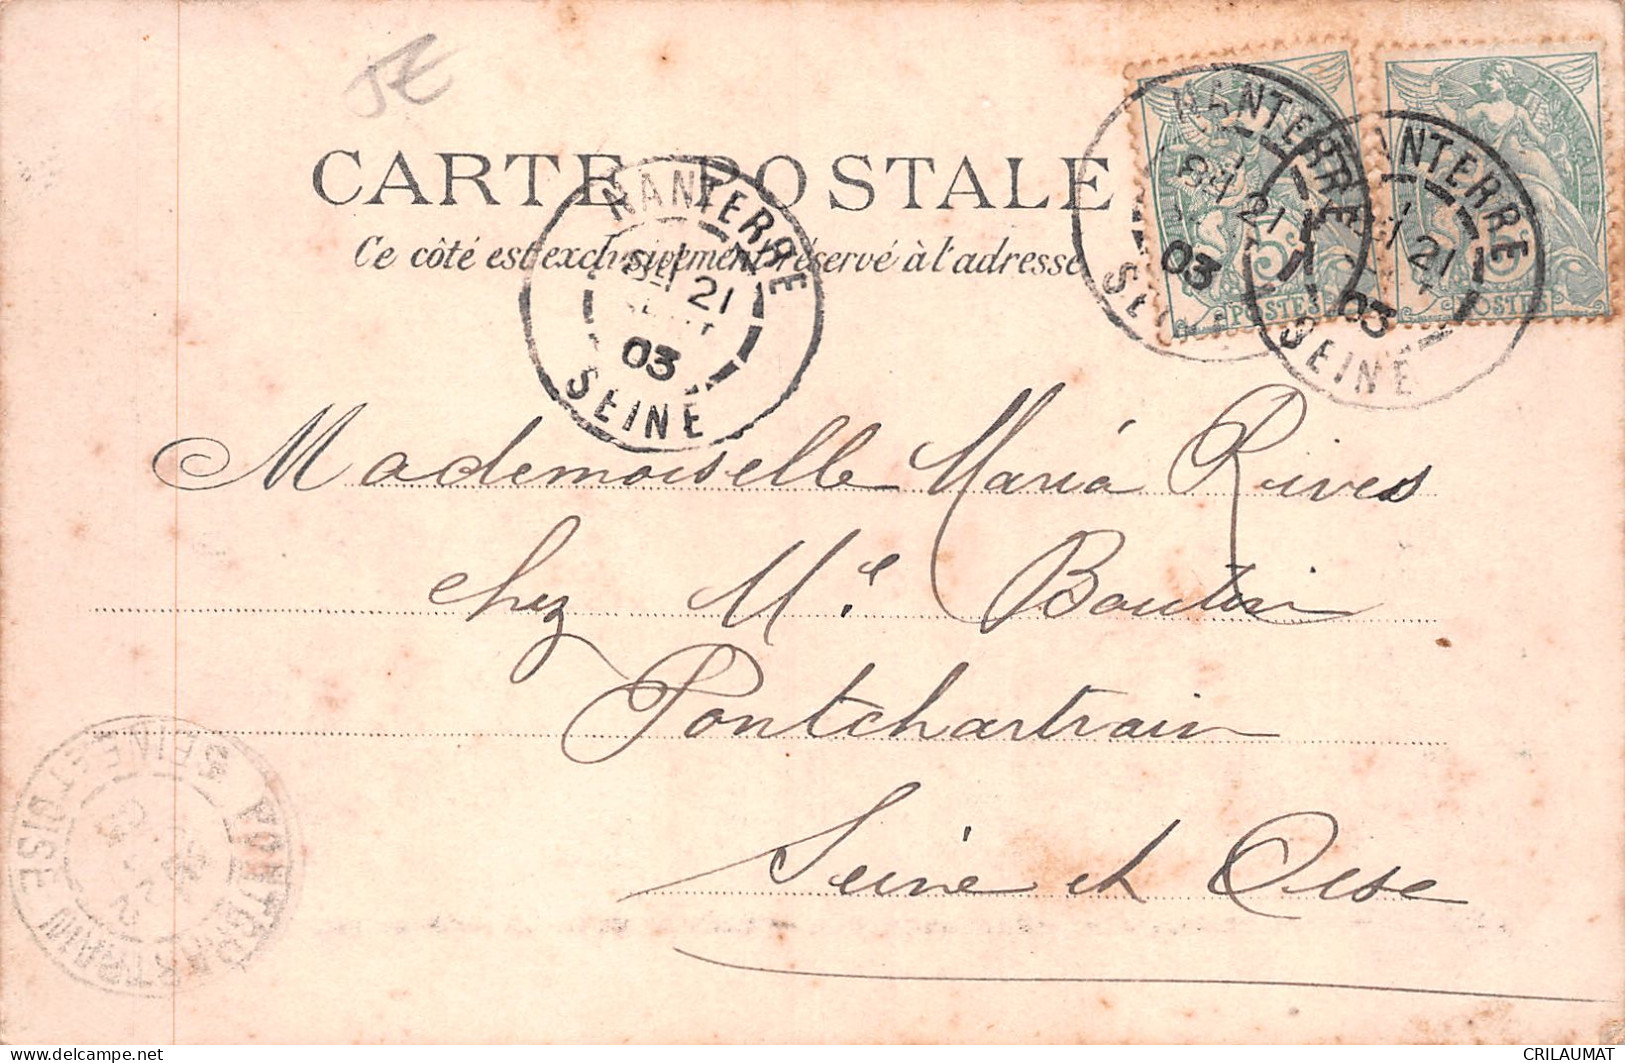 JE
CARTE POSTALE
Ce côté est exclusivement réservé à l'adresse
NANTERRE
21
03
SEINE
NANTERRE
8H 21
03
SEINE
5
POSTES
NANTERRE
21
03
SEINE
5
POSTES
Mademoiselle Maria Rives
chez Mle Boutin
Pontchartrain
Seine et Oise
PONTCHARTRAIN
22
03
SEINE-ET-OISE
delcampe.net
CRILAUMAT